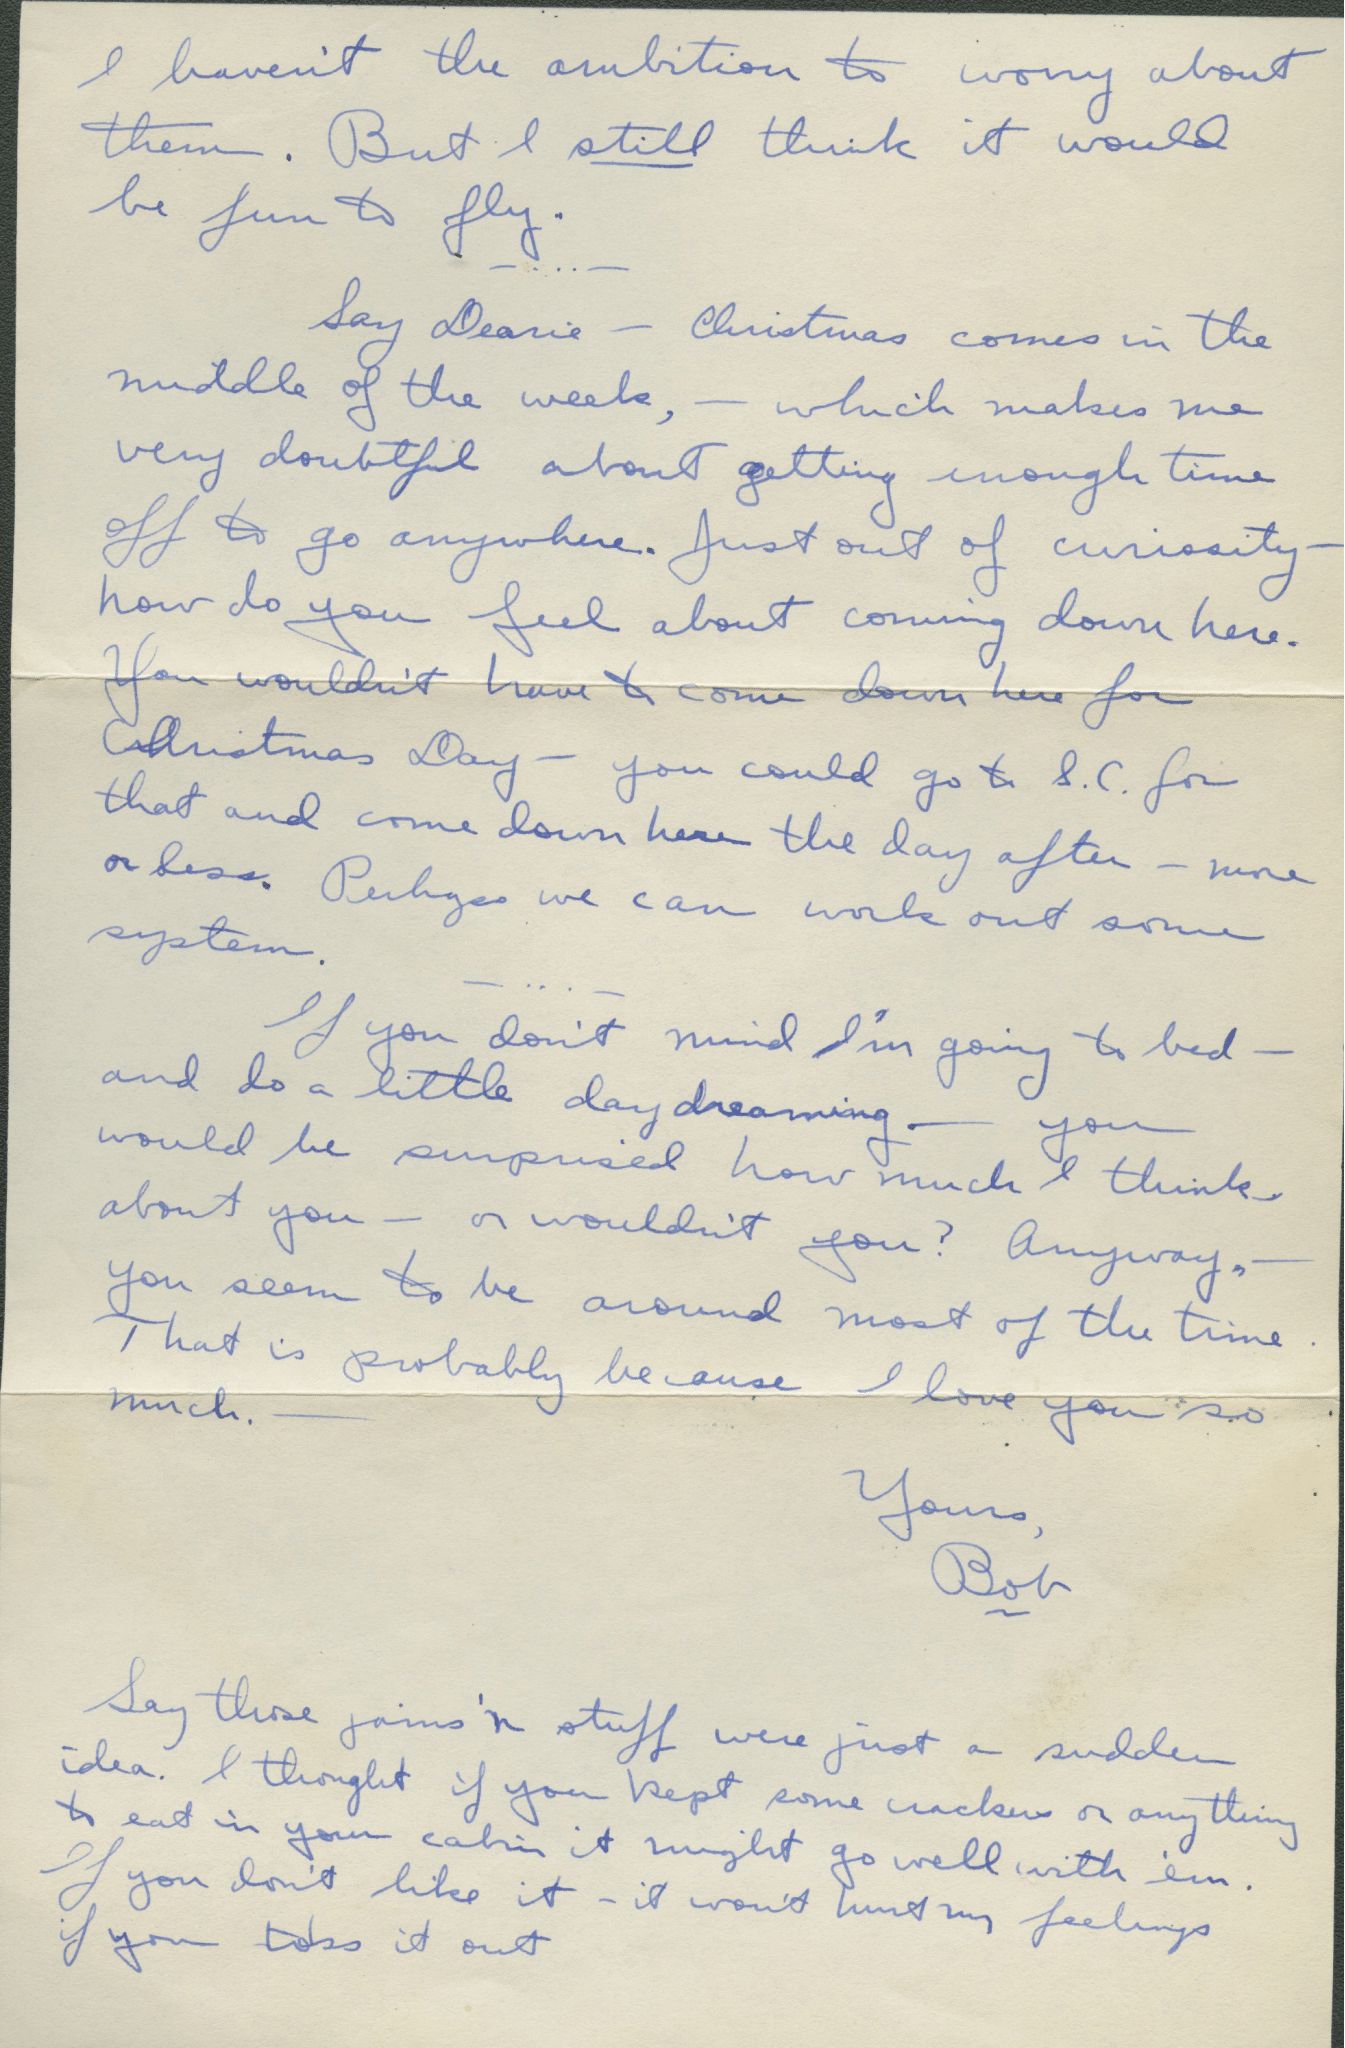 I haven't the ambition to worry about
them. But I still think it would
be fun to fly.
— .... —
Say Dearie — Christmas comes in the
middle of the week, — which makes me
very doubtful about getting enough time
off to go anywhere. Just out of curiosity —
how do you feel about coming down here.
You wouldn't have to come down here for
Christmas Day — you could go to S.C. for
that and come down here the day after — more
or less. Perhaps we can work out some
system.
— .... —
If you don't mind I'm going to bed —
and do a little daydreaming. — you
would be surprised how much I think
about you — or wouldn't you? Anyway, —
you seem to be around most of the time.
That is probably because I love you so
much. —
Yours,
Bob
Say those jams'n stuff were just a sudden
idea. I thought if you kept some crackers or anything
to eat in your cabin it might go well with 'em.
If you don't like it - it won't hurt my feelings
if you toss it out